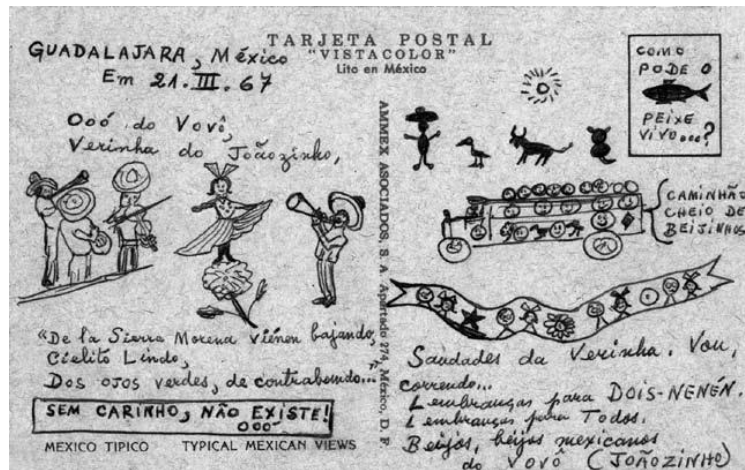 TARJETA POSTAL
"VISTACOLOR"
Lito en México
GUADALAJARA, México
Em 21.III.67
Ooó do Vovô,
Verinha do Joãozinho,
"De la Sierra Morena viénen bajando,
Cielito Lindo,
Dos ojos verdes, de contrabando..."
SEM CARINHO, NÃO EXISTE!
OOO-
MEXICO TIPICO TYPICAL MEXICAN VIEWS
AMMEX ASOCIADOS, S. A. Apartado 274, México, D. F.
COMO
PODE O
PEIXE
VIVO...?
CAMINHÃO
CHEIO DE
BEIJINHOS
Saudades da Verinha. Vou,
correndo...
Lembranças para DOIS-NENÉN.
Lembranças para Todos.
Beijos, beijos mexicanos
do Vovô (JOÃOZINHO)